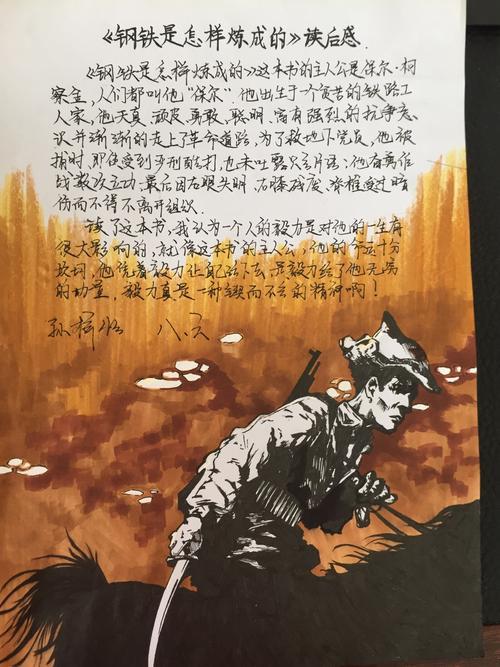 《钢铁是怎样炼成的》读后感.
《钢铁是怎样炼成的》这本书的主人公是保尔·柯
察金，人们都叫他“保尔”. 他出生于一个贫苦的铁路工
人家，他天真 顽皮 勇敢、聪明. 富有强烈的抗争意
识并渐渐的走上了革命道路，为了救地下党员，他被
捕时，即使受到严刑酷打，也未吐露只言片语，他奋勇作
战数次立功. 最后因右眼失明、右膝残废、脊椎受过暗
伤而不得不离开组织.
读了这本书，我认为一个人的毅力是对他的一生有
很大影响的，就像这本书的主人公，他的命运十分
坎坷，他凭着毅力让自己活下去，是毅力给了他无局
的功量，毅力真是一种锲而不舍的精神啊！
孙 八